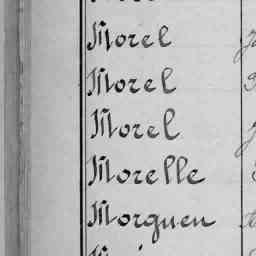 Morel
Morel
Morel
Morelle
Morguen